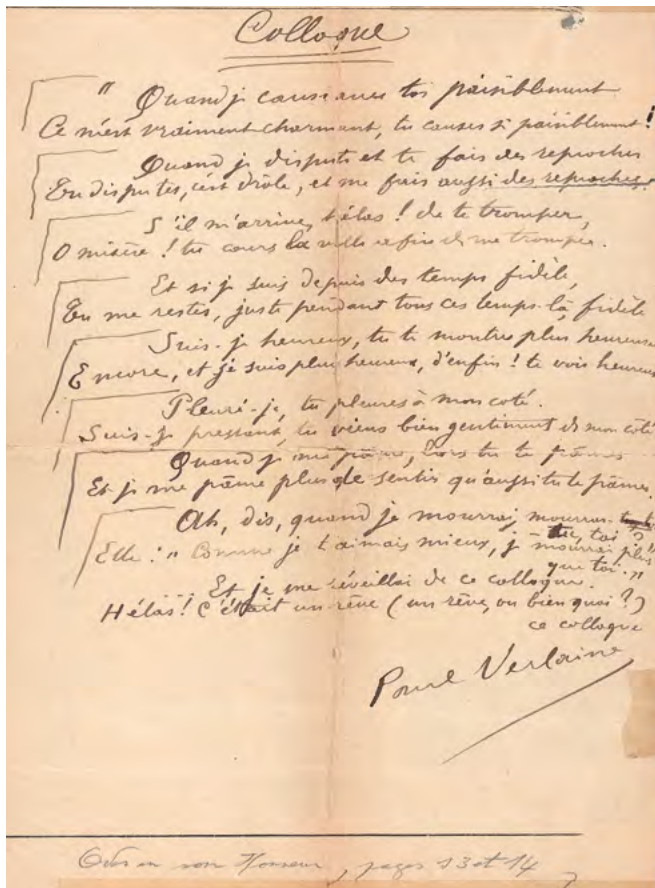 Colloque
" Quand je cause avec toi paisiblement
Ce m'est vraiment charmant, tu causes si paisiblement !
Quand je dispute et te fais des reproches
Tu disputes, c'est drôle, et me fais aussi des reproches.
S'il m'arrive, hélas ! de te tromper,
O misère ! tu cours la ville afin de me tromper.
Et si je suis depuis des temps fidèle,
Tu me restes, juste pendant tous ces temps-là, fidèle
Suis-je heureux, tu te montres plus heureuse
Encore, et je suis plus heureux, d'enfin ! te voir heureuse
Pleuré-je, tu pleures à mon coté.
Suis-je pressant, tu viens bien gentiment de mon coté
Quand je me pâme, lors tu te pâmes.
Et je me pâme plus de sentir qu'aussi tu te pâmes.
Ah, dis, quand je mourrai, mourras-
tu, toi ?
Elle : " Comme je t'aimais mieux, je mourrai plus
que toi. "
... Et je me réveillai de ce colloque.
Hélas ! C'était un rêve (un rêve, ou bien quoi ?)
ce colloque
Paul Verlaine
Odes en son Honneur, pages 13 et 14